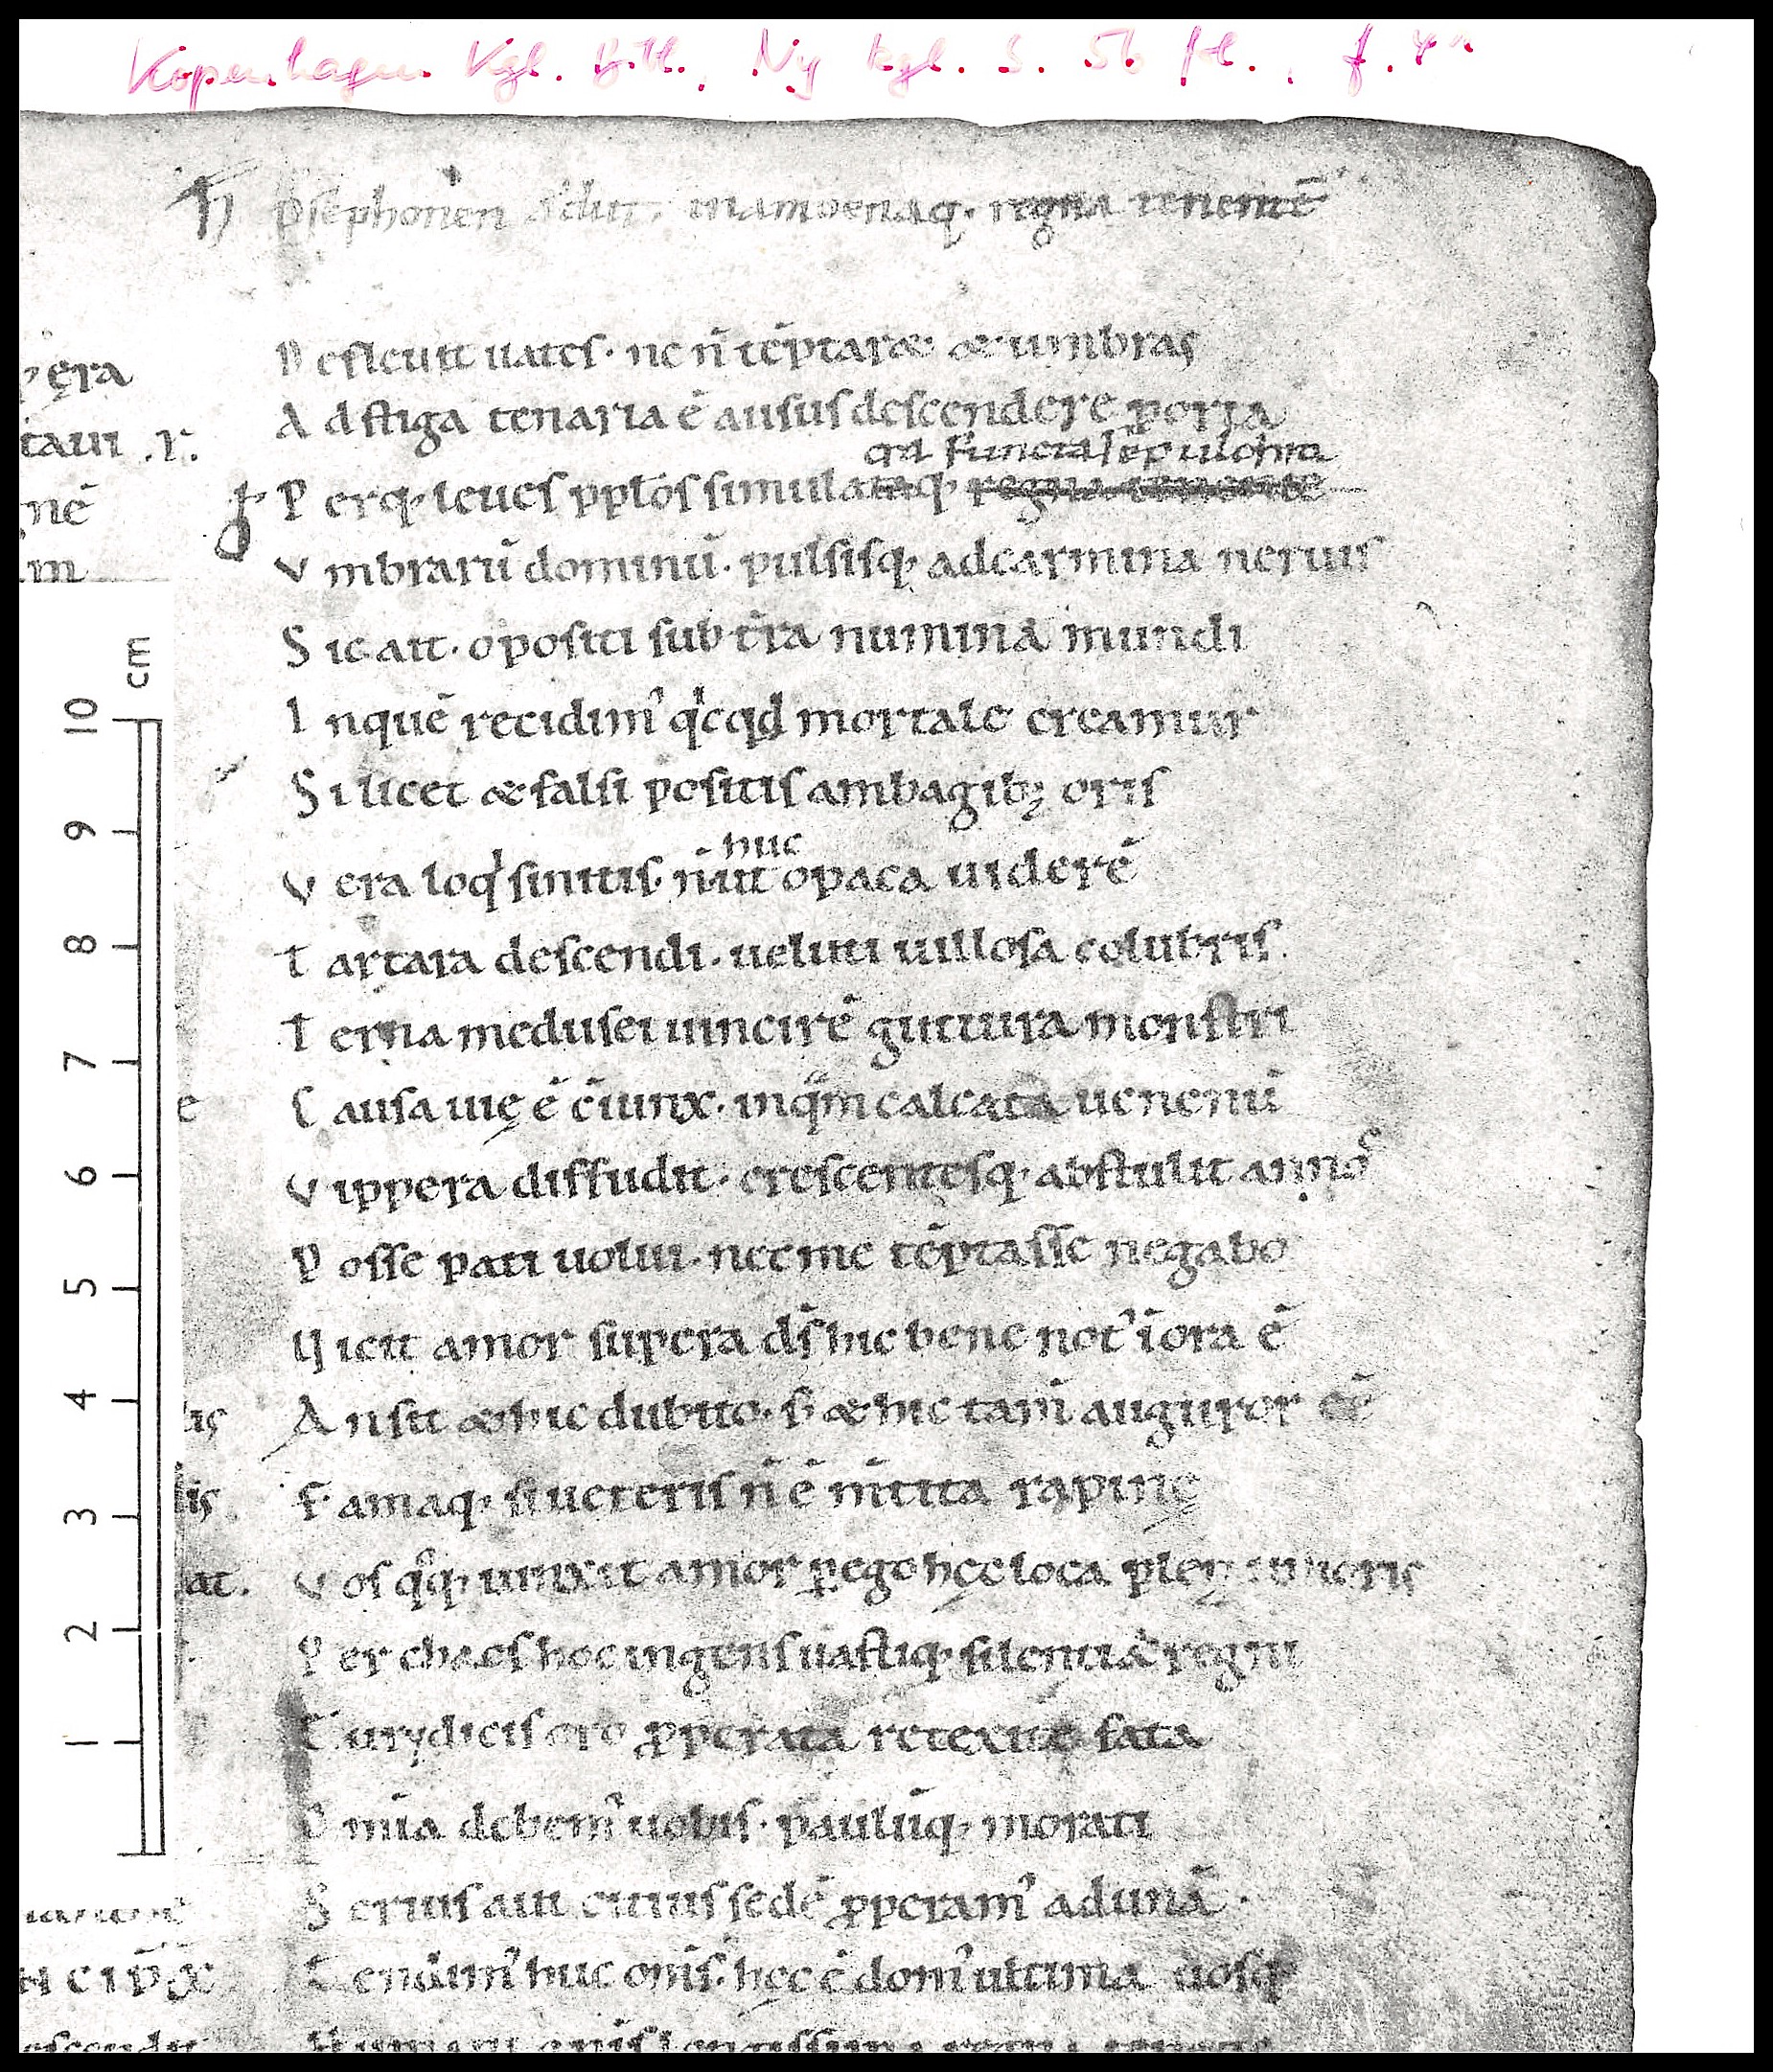 Kopenhagen Kgl. Bibl., Ny kgl. S. 56 fol., f. 4r
ħ p̱sephonen adiit. inamoenaq. regna tenentē
Defleuit uates. ne n̄ tēptar& & umbras
Ad stiga tenaria ē ausus descendere porta
qđ functa sepulchra
Perq; leues pp̱łos simulataq; regna tenente
vmbrarū dominū. pulsisq; ad carmina neruis
Sic ait. o positi sub t̄ra numina mundi
Inquē recidim᾽ qͥcqd mortale creamur
Si licet & falsi positis ambagib; oris
huc
vera loqͥ sinitis. n̄ ut opaca uiderē
Tartara descendi. ueluti uillosa colubris.
Terna medusei uincirē guttura monstri
Causa uię ē c̄iunx. inqͣm calcata uenenū
vippera diffudit. crescentesq; abstulit annos
Posse pati uolui. nec me tēptasse negabo
Uicit amor supera ds̄ hic bene not᾽ īora ē
An sit & hic dubito. s; & hic tam̄ auguror eē
Famaq; si ueteris n̄ ē m̄tita rapinę
vos qͦq; iunxit amor p̱ ego hęc loca plena timoris
Per chaos hoc ingens uastiq; silentia regni
Eurydicis oro p̱perata retexite fata
Omīa debem᾽ uobis. paulūq; morati
Serius aut citius sedē p̱peram᾽ ad unā.
Tendim᾽ huc om̄s. hęc ē dom᾽ ultima uosq;
ęra
taui .r.
nē
m
e
is
is
at.
cm
10
9
8
7
6
5
4
3
2
1